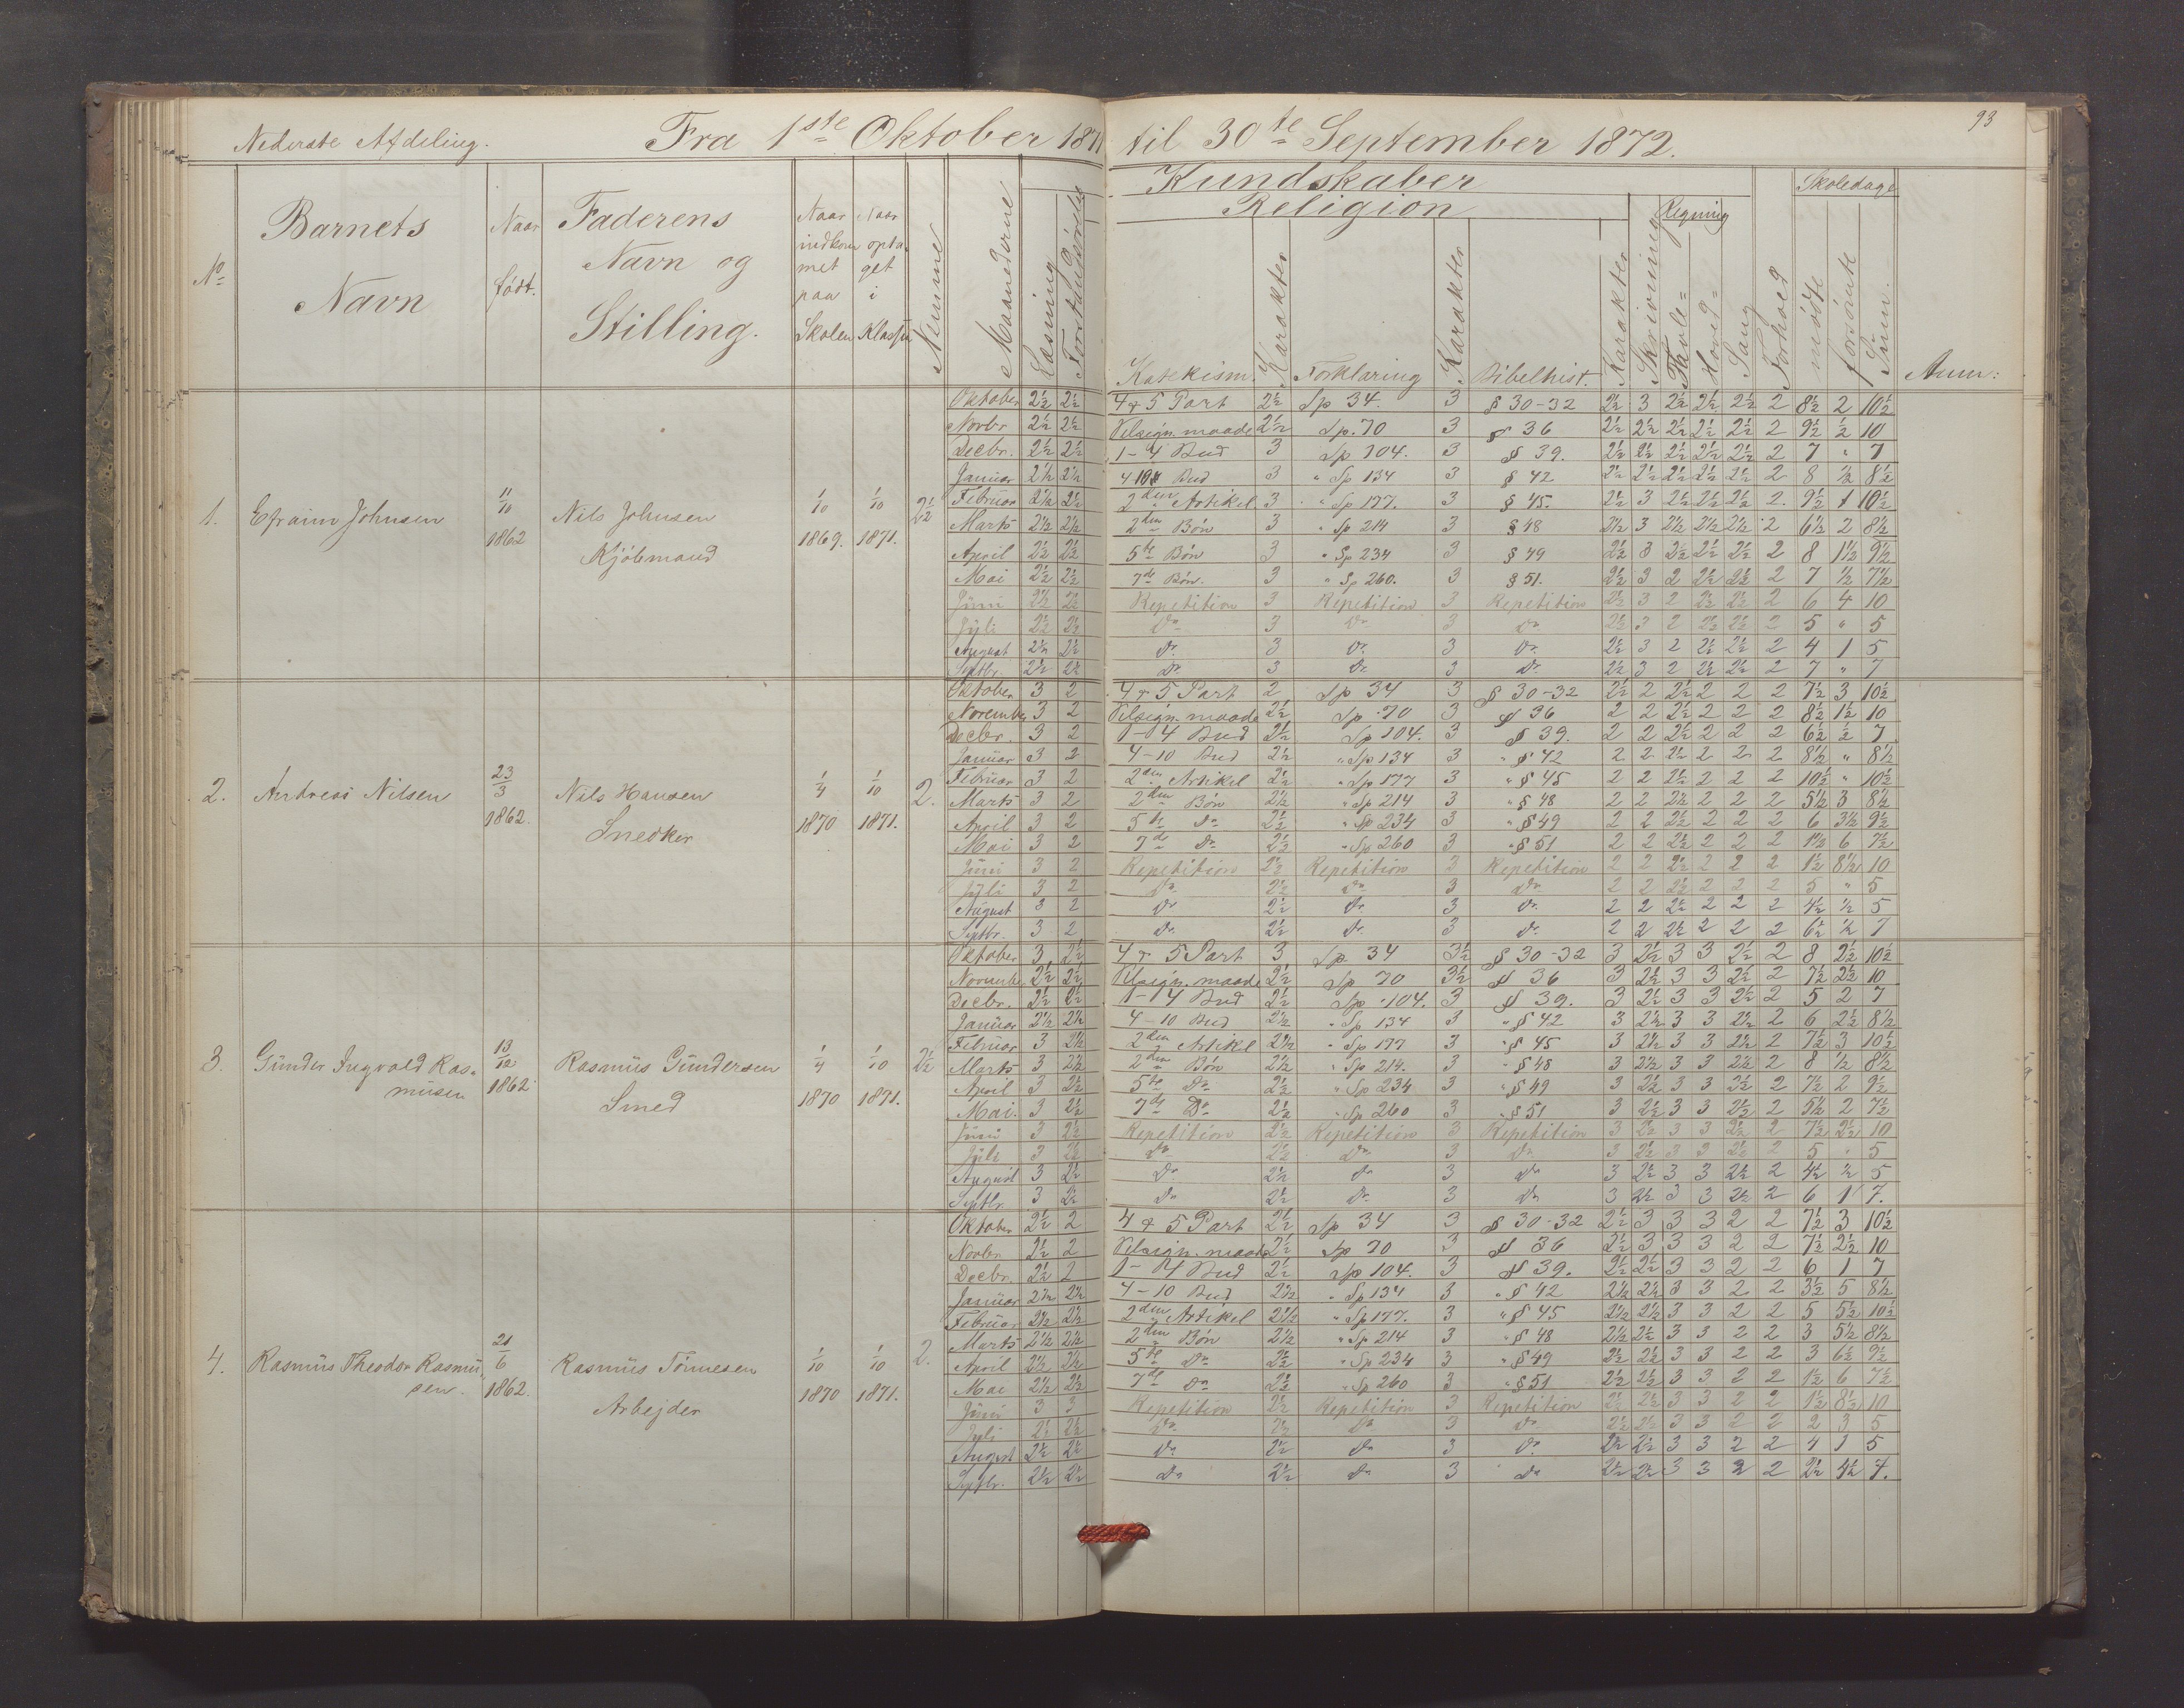 93
Nederste Afdeling. Fra 1ste Oktober 1871 til 30te September 1872.
No
Barnets Navn
Naar født.
Faderens Navn og Stilling.
Naar indkommet paa Skolen
Naar optaget i Klassen
Nemme
Maanederne
Læsning
Kundskaber
Religion
Katekism.
Karakter
Forklaring
Karakter
Bibelhist.
Karakter
Skrivning
Regning
Tavle-
Hoved-
Sang
Forhold
Skoledage
mødte
forsømte
Sum.
Anm:
1. Efraim Johnsen 11/10 1862 Nils Johnsen Kjöbmand 1/10 1869. 1/10 1871. 2½
Oktober 2½ 2½ 4 & 5 Part 2½ Sp 34. 3 § 30-32 2½ 3 2½ 2½ 2½ 2 8½ 2 10½
Novbr 2½ 2½ Velsign. maade 2½ Sp. 70 3 § 36 2½ 2½ 2½ 2½ 2½ 2 9½ ½ 10
Decbr. 2½ 2½ 1-4 Bud 3 Sp 104. 3 § 39. 2½ 2½ 2½ 2½ 2½ 2 7 " 7
Januar 2½ 2½ Bud 3 " Sp 134 3 § 42 2½ 2½ 2½ 2½ 2½ 2 8 ½ 8½
Februar 2½ 2½ 2den Artikel 3 " Sp 177. 3 § 45. 2½ 3 2½ 2½ 2½ 2. 9½ 1 10½
Marts 2½ 2½ 2den Bön 3 " Sp 214 3 § 48 2½ 3 2½ 2½ 2½ 2 6½ 2 8½
April 2½ 2½ 5te Bön 3 " Sp 234 3 § 49 2½ 3 2½ 2½ 2½ 2 8 1½ 9½
Mai 2½ 2½ 7de Bön. 3 " Sp 260. 3 § 51. 2½ 3 2 2½ 2½ 2 7 ½ 7½
Juni 2½ 2½ Repetition 3 Repetition 3 Repetition 2½ 3 2 2½ 2½ 2 6 4 10
Juli 2½ 2½ Do 3 Do 3 Do 2½ 3 2 2½ 2½ 2 5 " 5
August 2½ 2½ Do. 3 Do. 3 Do. 2½ 3 2 2½ 2½ 2 4 1 5
Septbr. 2½ 2½ Do. 3 Do. 3 Do. 2½ 3 2 2½ 2½ 2 7 " 7
2. Andreas Nilsen 23/3 1862. Nils Hansen Snedker 1/4 1870 1/10 1871. 2.
Oktober 3 2 4 & 5 Part 2 Sp 34 3 § 30-32 2½ 2 2½ 2 2 2 7½ 3 10½
November 3 2 Velsign. maade 2½ Sp 70 3 § 36 2 2 2½ 2 2 2 8½ 1½ 10
Decbr. 3 2 1-4 Bud 2½ Sp 104. 3 § 39. 2 2 2½ 2 2 2 6½ ½ 7
Januar 3 2 4-10 Bud 2½ " Sp 134 3 " § 42 2 2 2½ 2 2 2 8½ " 8½
Februar 3 2 2den Artikel 2½ " Sp 177 3 " § 45 2 2 2½ 2 2 2 10½ " 10½
Marts 3 2 2den Bön 2½ " Sp 214 3 " § 48 2 2 2½ 2 2 2 5½ 3 8½
April 3 2 5te Do 2½ " Sp 234 3 " § 49 2 2 2½ 2 2 2 6 3½ 9½
Mai 3 2 7de Do 2½ " Sp 260 3 " § 51 2 2 2½ 2 2 2 1½ 6 7½
Juni 3 2 Repetition 2½ Repetition 3 Repetition 2 2 2½ 2 2 2 1½ 8½ 10
Juli 3 2 Do 2½ Do 3 Do 2 2 2½ 2 2 2 5 " 5
August 3 2 Do 2½ Do. 3 Do. 2 2 2½ 2 2 2 4½ ½ 5
Septbr. 3 2 Do. 2½ Do. 3 Do. 2 2 2½ 2 2 2 6½ ½ 7
3. Gunder Ingvald Rasmusen 13/12 1862 Rasmus Gundersen Smed 1/4 1870 1/10 1871. 2½
Oktober 3 2½ 4 & 5 Part 3 Sp. 34 3½ § 30-32 3 2½ 3 3 2½ 2 8 2½ 10½
Novembr 2½ 2½ Velsign. maade 2½ Sp 70 3½ § 36 3 2½ 3 3 2½ 2 7½ 2½ 10
Decbr. 2½ 2½ 1-4 Bud 2½ Sp 104. 3 § 39. 3 2½ 3 3 2½ 2 5 2 7
Januar 2½ 2½ 4-10 Bud 2½ " Sp 134 3 " § 42 3 2½ 3 3 2½ 2 6 2½ 8½
Februar 3 2½ 2den Artikel 2½ " Sp 177 3 " § 45 3 2½ 3 3 2½ 2 7½ 3 10½
Marts 3 2½ 2den Bön 2½ " Sp 214. 3 " § 48 3 2½ 3 3 2½ 2 8 ½ 8½
April 3 2½ 5te Do 2½ " Sp 234 3 " § 49 3 2½ 3 3 2½ 2 7½ 2 9½
Mai. 3 2½ 7de Do 2½ " Sp 260 3 " § 51 3 2½ 3 3 2½ 2 5½ 2 7½
Juni 3 2½ Repetition 2½ Repetition 3 Repetition 3 2½ 3 3 2½ 2 7½ 2½ 10
Juli 3 2½ Do 2½ Do 3 Do 3 2½ 3 3 2½ 2 5 " 5
August 3 2½ Do 2½ Do 3 Do 3 2½ 3 3 2½ 2 4½ ½ 5
Septbr. 3 2½ Do 2½ Do. 3 Do 3 2½ 3 3 2½ 2 6 1 7.
4. Rasmus Theodor Rasmusen. 21/6 1862. Rasmus Tönnesen Arbejder 1/10 1870 1/10 1871. 2.
Oktober 2½ 2 4 & 5 Part 2½ Sp 34 3 § 30-32 2½ 3 3 3 2 2 7½ 3 10½
Novbr. 2½ 2 Velsign. maade 2½ Sp 70 3 § 36 2½ 3 3 3 2 2 7½ 2½ 10
Decbr. 2½ 2 1-4 Bud 2½ Sp 104. 3 § 39. 2½ 2½ 3 3 2 2 6 1 7
Januar 2½ 2½ 4-10 Bud 2½ " Sp 134 3 " § 42 2½ 2½ 3 3 2 2 3½ 5 8½
Februar 2½ 2½ 2den Artikel 2½ " Sp 177. 3 " § 45 2½ 2½ 3 3 2 2 5 5½ 10½
Marts 2½ 2½ 2den Bön 2½ " Sp 214 3 " § 48 2½ 2½ 3 3 2 2 3 5½ 8½
April 2½ 2½ 5te Do 2½ " Sp 234 3 " § 49 2½ 2½ 3 3 2 2 3 6½ 9½
Mai 2½ 2½ 7de Do 2½ " Sp 260 3 " § 51 2½ 2½ 3 3 2 2 1½ 6 7½
Juni 3 3 Repetition 2½ Repetition 3 Repetition 2½ 2½ 3 3 2 2 1½ 8½ 10
Juli 2½ 2½ Do. 2½ Do 3 Do 2½ 2½ 3 3 2 2 2 3 5
August 2½ 2½ Do. 2½ Do 3 Do. 2½ 2½ 3 3 2 2 4 1 5
Septbr. 2½ 2½ Do 2½ Do 3 Do 2½ 2½ 3 3 2 2 2½ 4½ 7.